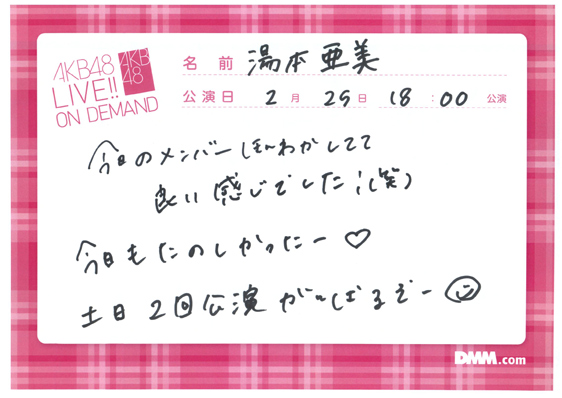 AKB48
LIVE!!
ON DEMAND
AKB
48
名前 湯本亜美
公演日 2月25日 18:00 公演
今日のメンバーほんわかしてて
良い感じでした!(笑)
今日もたのしかったー♡
土日2回公演がんばるぞー☺
DMM.com